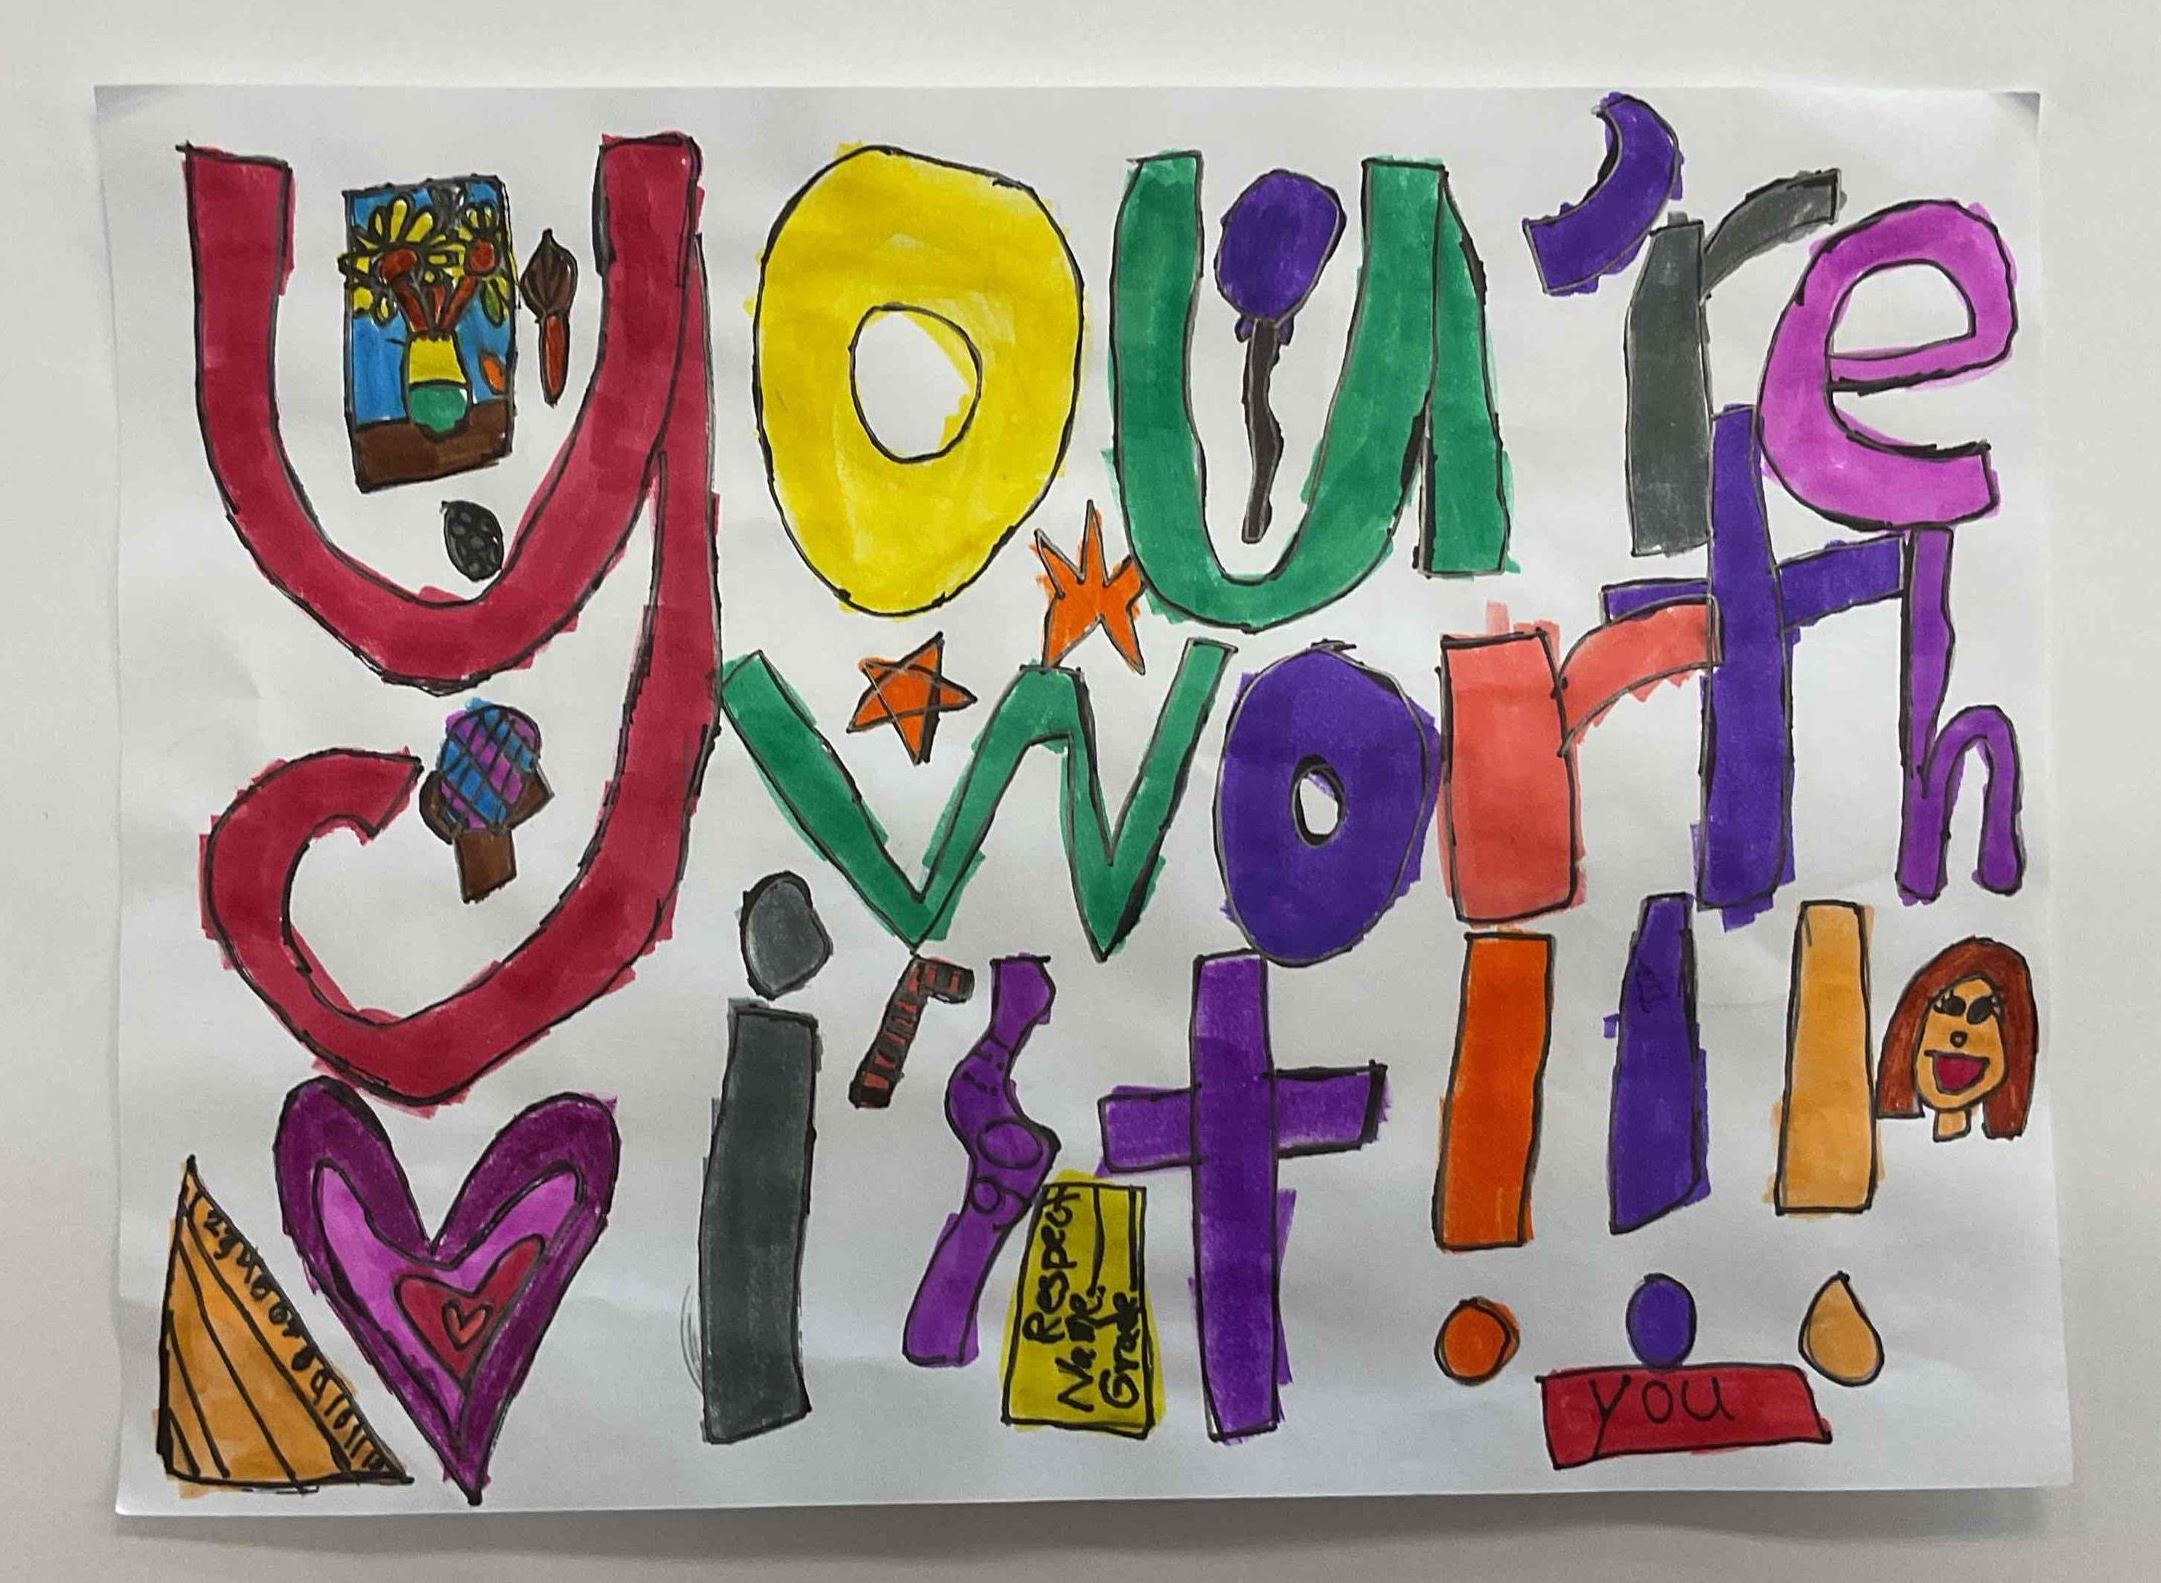 you're
worth
it!!!
Respect
Name:
Grade:
you